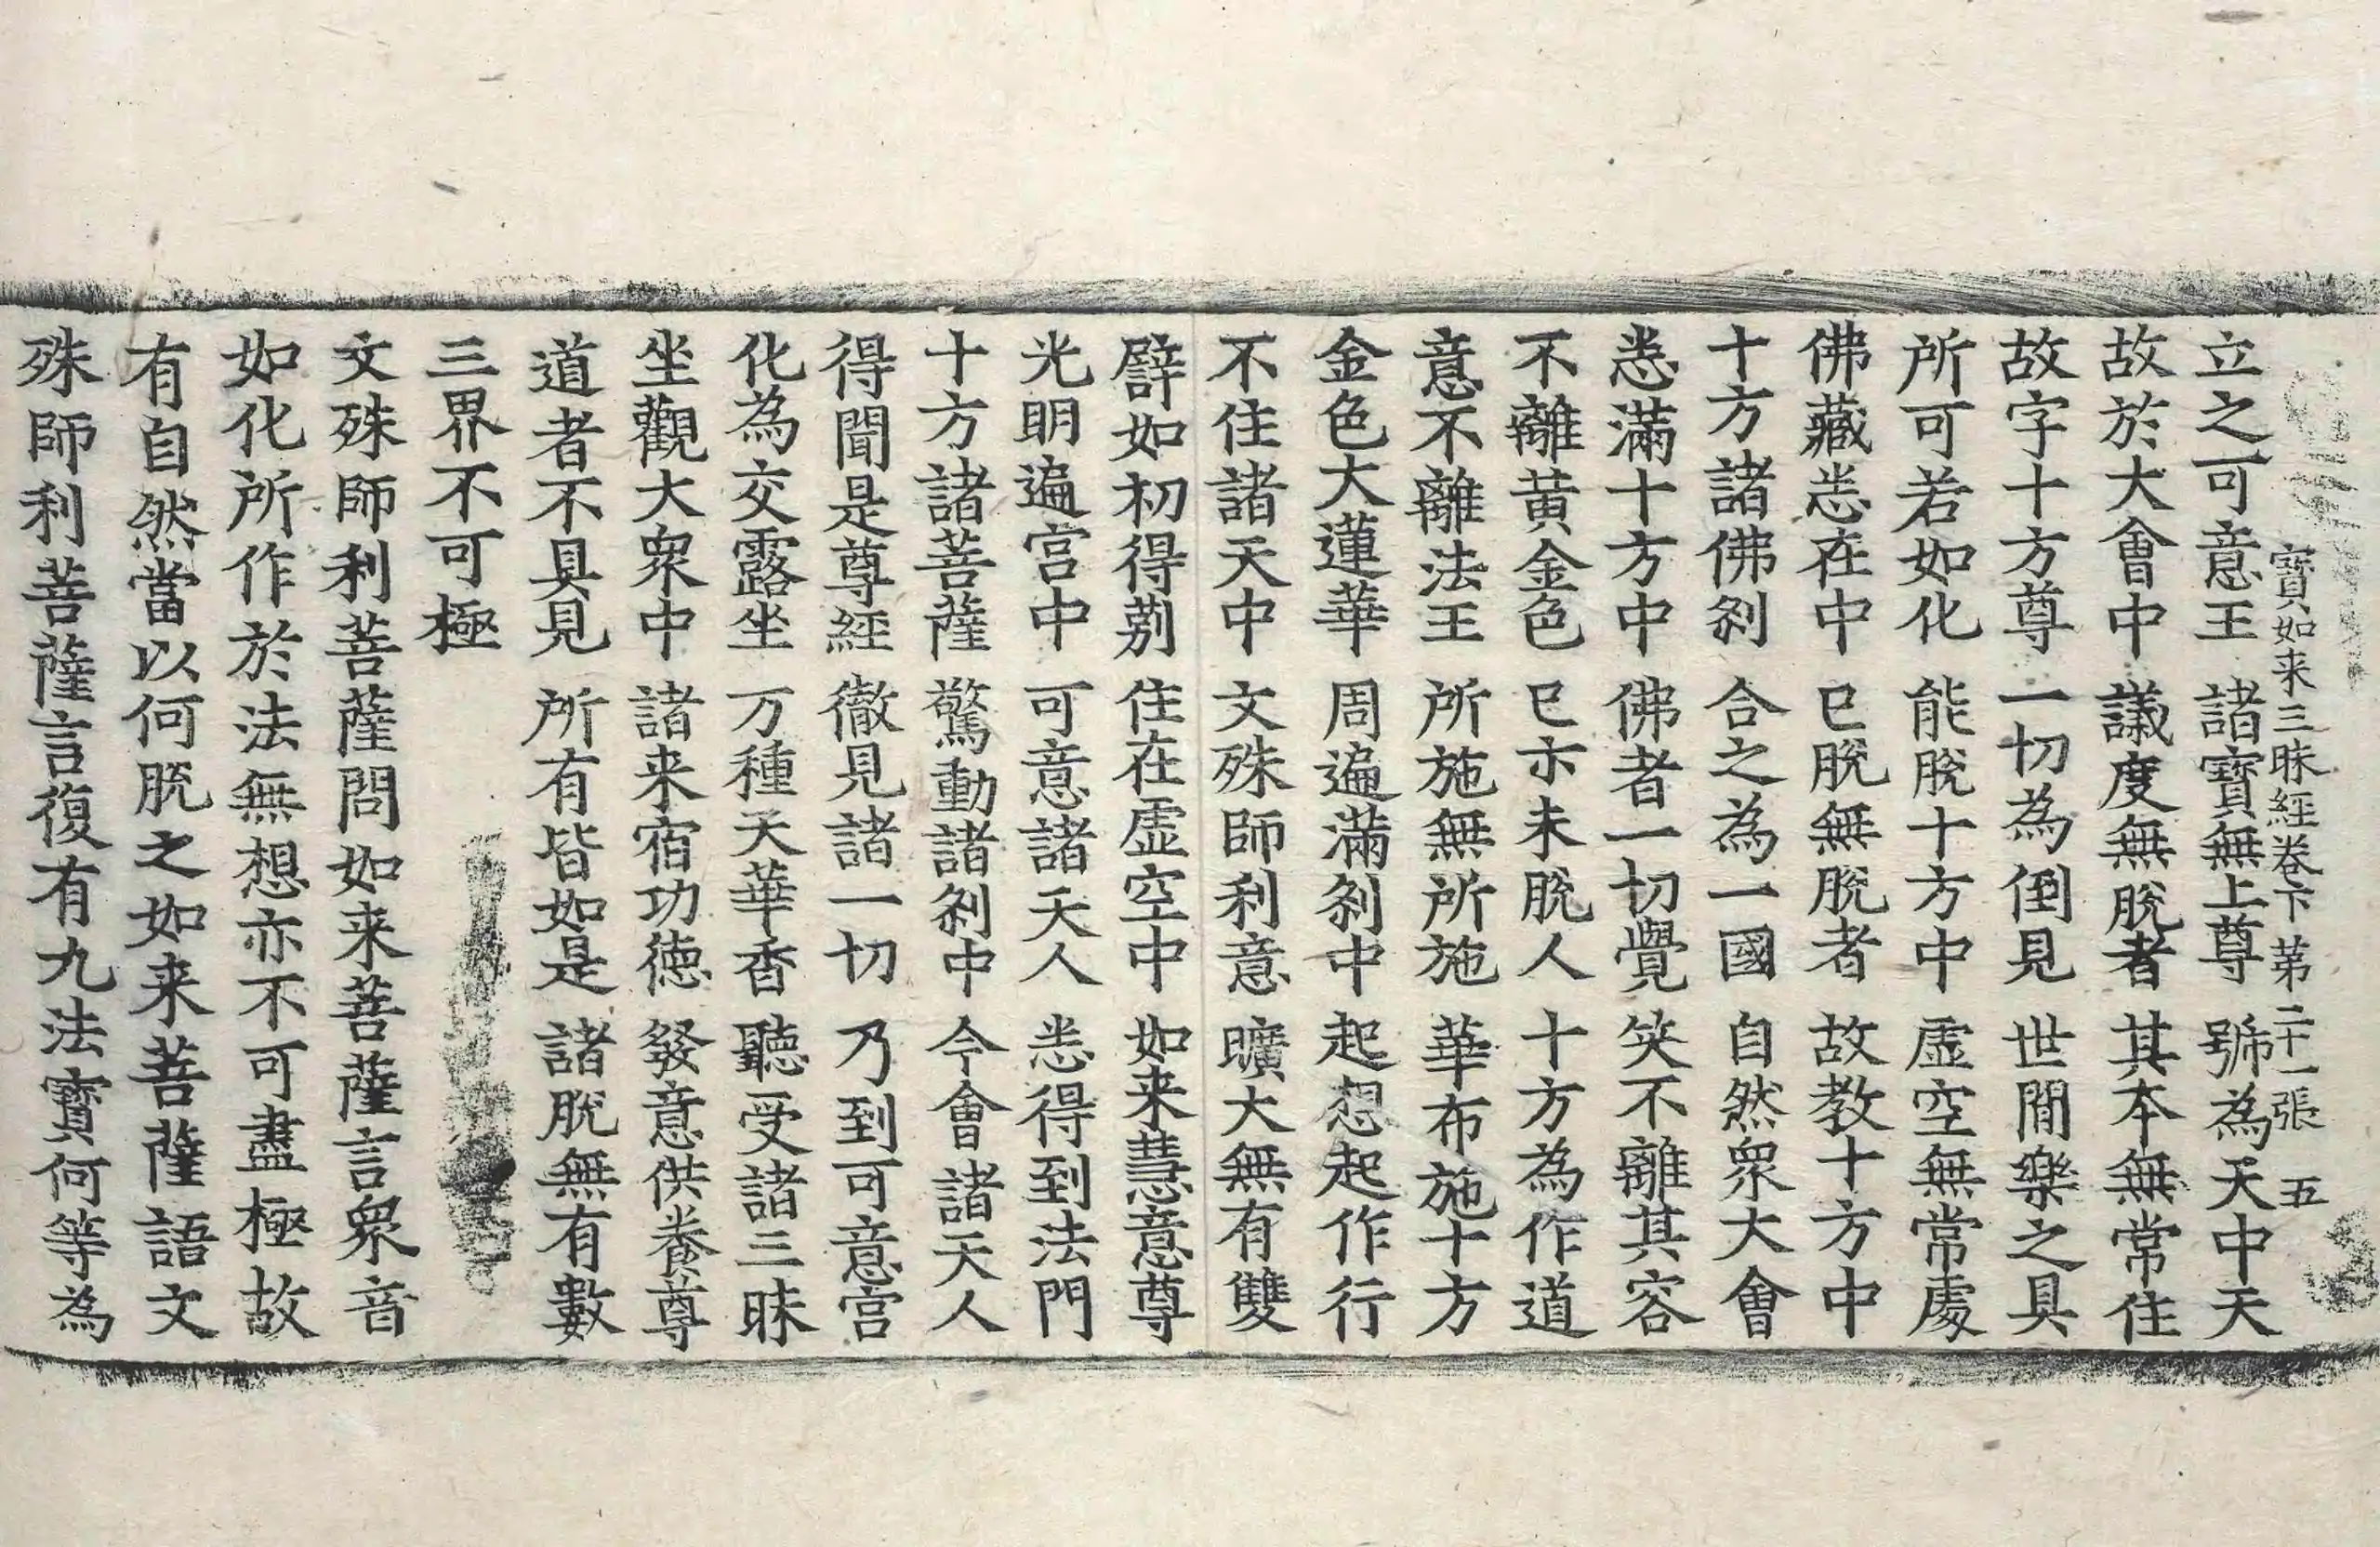 寶如来三昧經卷下 第二十一張 五
立之可意王 諸寶無上尊 號為天中天
故於大會中 議度無脫者 其本無常住
故字十方尊 一切為倒見 世間樂之具
所可若如化 能脫十方中 虛空無常處
佛藏悉在中 已脫無脫者 故教十方中
十方諸佛剎 合之為一國 自然眾大會
悉滿十方中 佛者一切覺 笑不離其容
不離黃金色 已示未脫人 十方為作道
意不離法王 所施無所施 華布施十方
金色大蓮華 周遍滿剎中 起想起作行
不住諸天中 文殊師利意 曠大無有雙
譬如初得莂 住在虛空中 如来慧意尊
光明遍宮中 可意諸天人 悉得到法門
十方諸菩薩 驚動諸剎中 今會諸天人
得聞是尊經 徹見諸一切 乃到可意宮
化為交露坐 万種天華香 聽受諸三昧
坐觀大眾中 諸来宿功德 發意供養尊
道者不具見 所有皆如是 諸脫無有數
三界不可極
文殊師利菩薩問如来菩薩言眾音
如化所作於法無想亦不可盡極故
有自然當以何脫之如来菩薩語文
殊師利菩薩言復有九法寶何等為